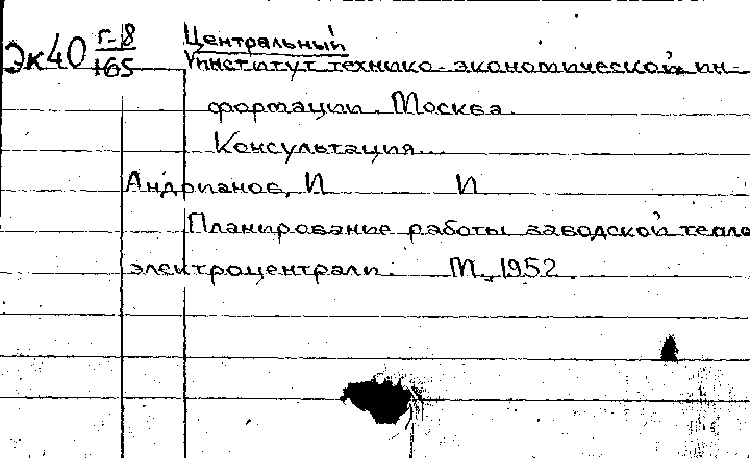 Эк40 Г-8 Центральный
165 институт технико-экономической ин-
формации. Москва.
Консультация...
Андрианов, И И
Планирование работы заводской тепло
электроцентрали. М., 1952.